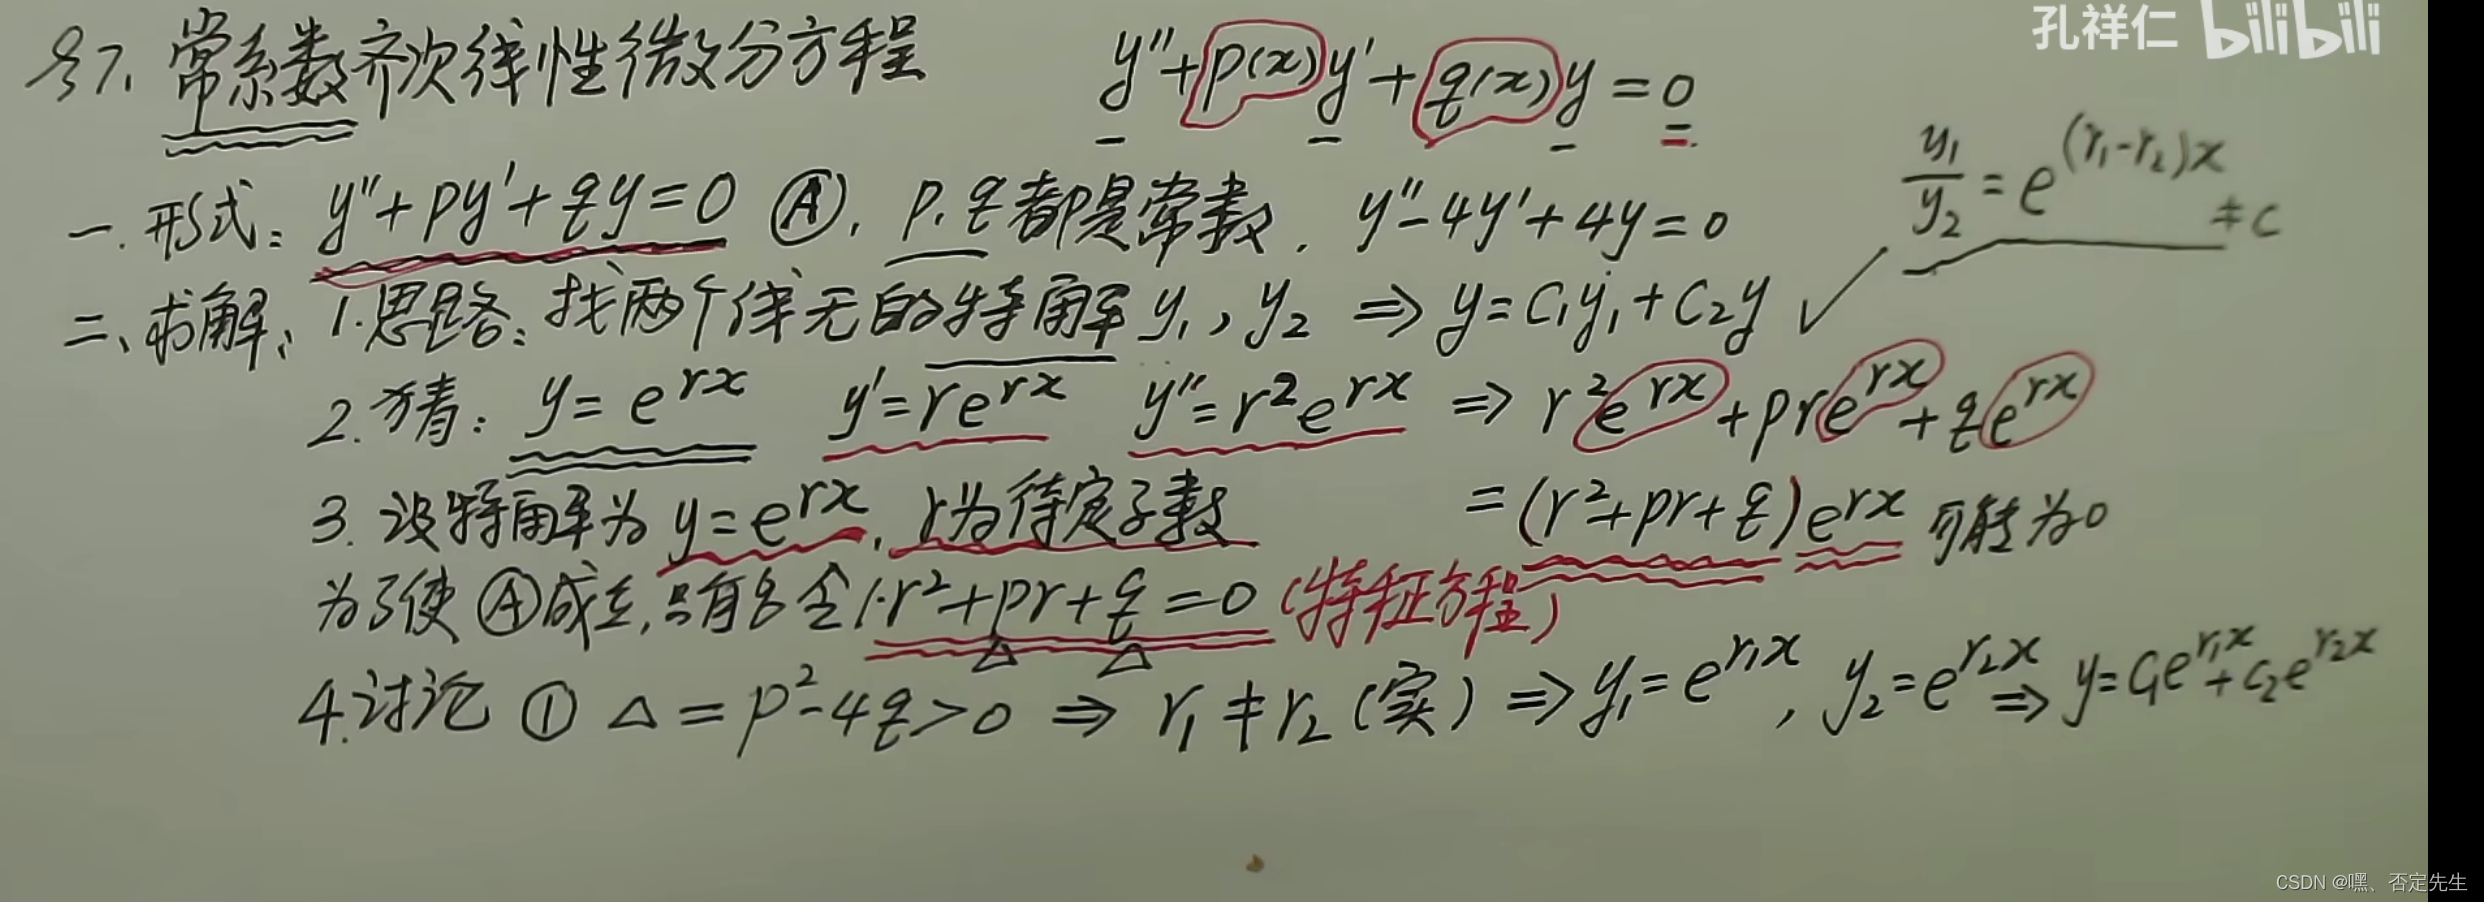 孔祥仁 bilibili
§7. 常系数齐次线性微分方程 y''+p(x)y'+q(x)y=0
y₁/y₂=e^{(r₁-r₂)x} ≠c
一.形式: y''+py'+qy=0 Ⓐ. p.q都是常数. y''-4y'+4y=0
二、求解、1.思路:找两个线无的特解y₁,y₂ ⇒ y=C₁y₁+C₂y ✓
2.猜: y=e^{rx} y'=re^{rx} y''=r²e^{rx} ⇒ r²e^{rx}+pre^{rx}+qe^{rx}
3.设特解为y=e^{rx}, r为待定系数 =(r²+pr+q)e^{rx} 可能为0
为了使Ⓐ成立,只有令1·r²+pr+q=0(特征方程)
4.讨论 ① Δ=p²-4q>0 ⇒ r₁≠r₂(实) ⇒ y₁=e^{r₁x}, y₂=e^{r₂x} ⇒ y=C₁e^{r₁x}+C₂e^{r₂x}
CSDN @嘿、否定先生